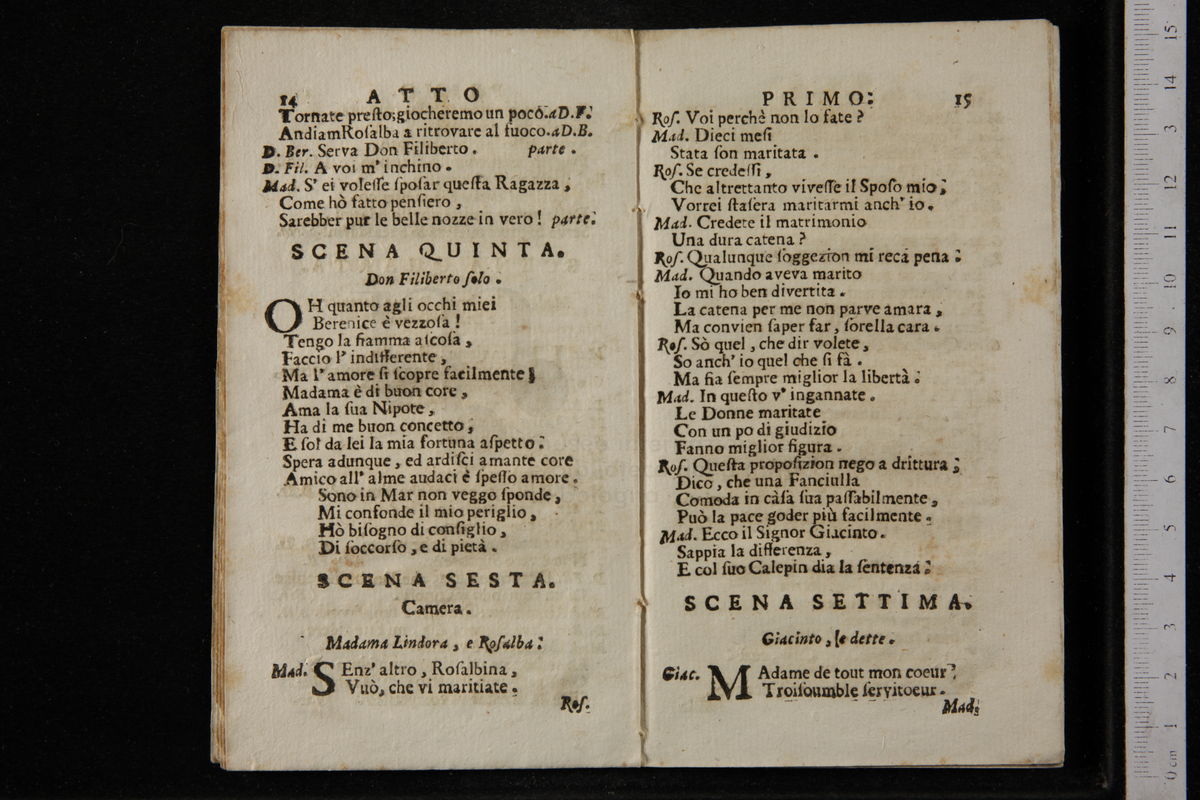 14 ATTO
Tornate preſto; giocheremo un poco. a D. F.
Andiam Roſalba a ritrovare al fuoco. a D. B.
D. Ber. Serva Don Filiberto. parte.
D. Fil. A voi m' inchino.
Mad. S' ei voleſſe ſpoſar queſta Ragazza,
Come hò fatto penſiero,
Sarebber pur le belle nozze in vero! parte.
SCENA QUINTA.
Don Filiberto ſolo.
OH quanto agli occhi miei
Berenice è vezzoſa!
Tengo la fiamma aſcoſa,
Faccio l' indifferente,
Ma l' amore ſi ſcopre facilmente;
Madama è di buon core,
Ama la ſua Nipote,
Ha di me buon concetto,
E ſol da lei la mia fortuna aſpetto.
Spera adunque, ed ardiſci amante core
Amico all' alme audaci è ſpeſſo amore.
Sono in Mar non veggo ſponde,
Mi confonde il mio periglio,
Hò biſogno di conſiglio,
Di ſoccorſo, e di pietà.
SCENA SESTA.
Camera.
Madama Lindora, e Roſalba.
Mad. SEnz' altro, Roſalbina,
Vuò, che vi maritiate.
Roſ.
PRIMO. 15
Roſ. Voi perchè non lo fate?
Mad. Dieci meſi
Stata ſon maritata.
Roſ. Se credeſſi,
Che altrettanto viveſſe il Spoſo mio;
Vorrei ſtaſera maritarmi anch' io.
Mad. Credete il matrimonio
Una dura catena?
Roſ. Qualunque ſoggezion mi reca pena.
Mad. Quando aveva marito
Io mi ho ben divertita.
La catena per me non parve amara,
Ma convien ſaper far, ſorella cara.
Roſ. Sò quel, che dir volete,
So anch' io quel che ſi fà.
Ma fia ſempre miglior la libertà.
Mad. In queſto v' ingannate.
Le Donne maritate
Con un po di giudizio
Fanno miglior figura.
Roſ. Queſta propoſizion nego a drittura;
Dico, che una Fanciulla
Comoda in càſa ſua paſſabilmente,
Può la pace goder più facilmente.
Mad. Ecco il Signor Giacinto.
Sappia la differenza,
E col ſuo Calepin dia la ſentenza.
SCENA SETTIMA.
Giacinto, le dette.
Giac. MAdame de tout mon coeur,
Troiſoumble ſervitoeur.
Mad.